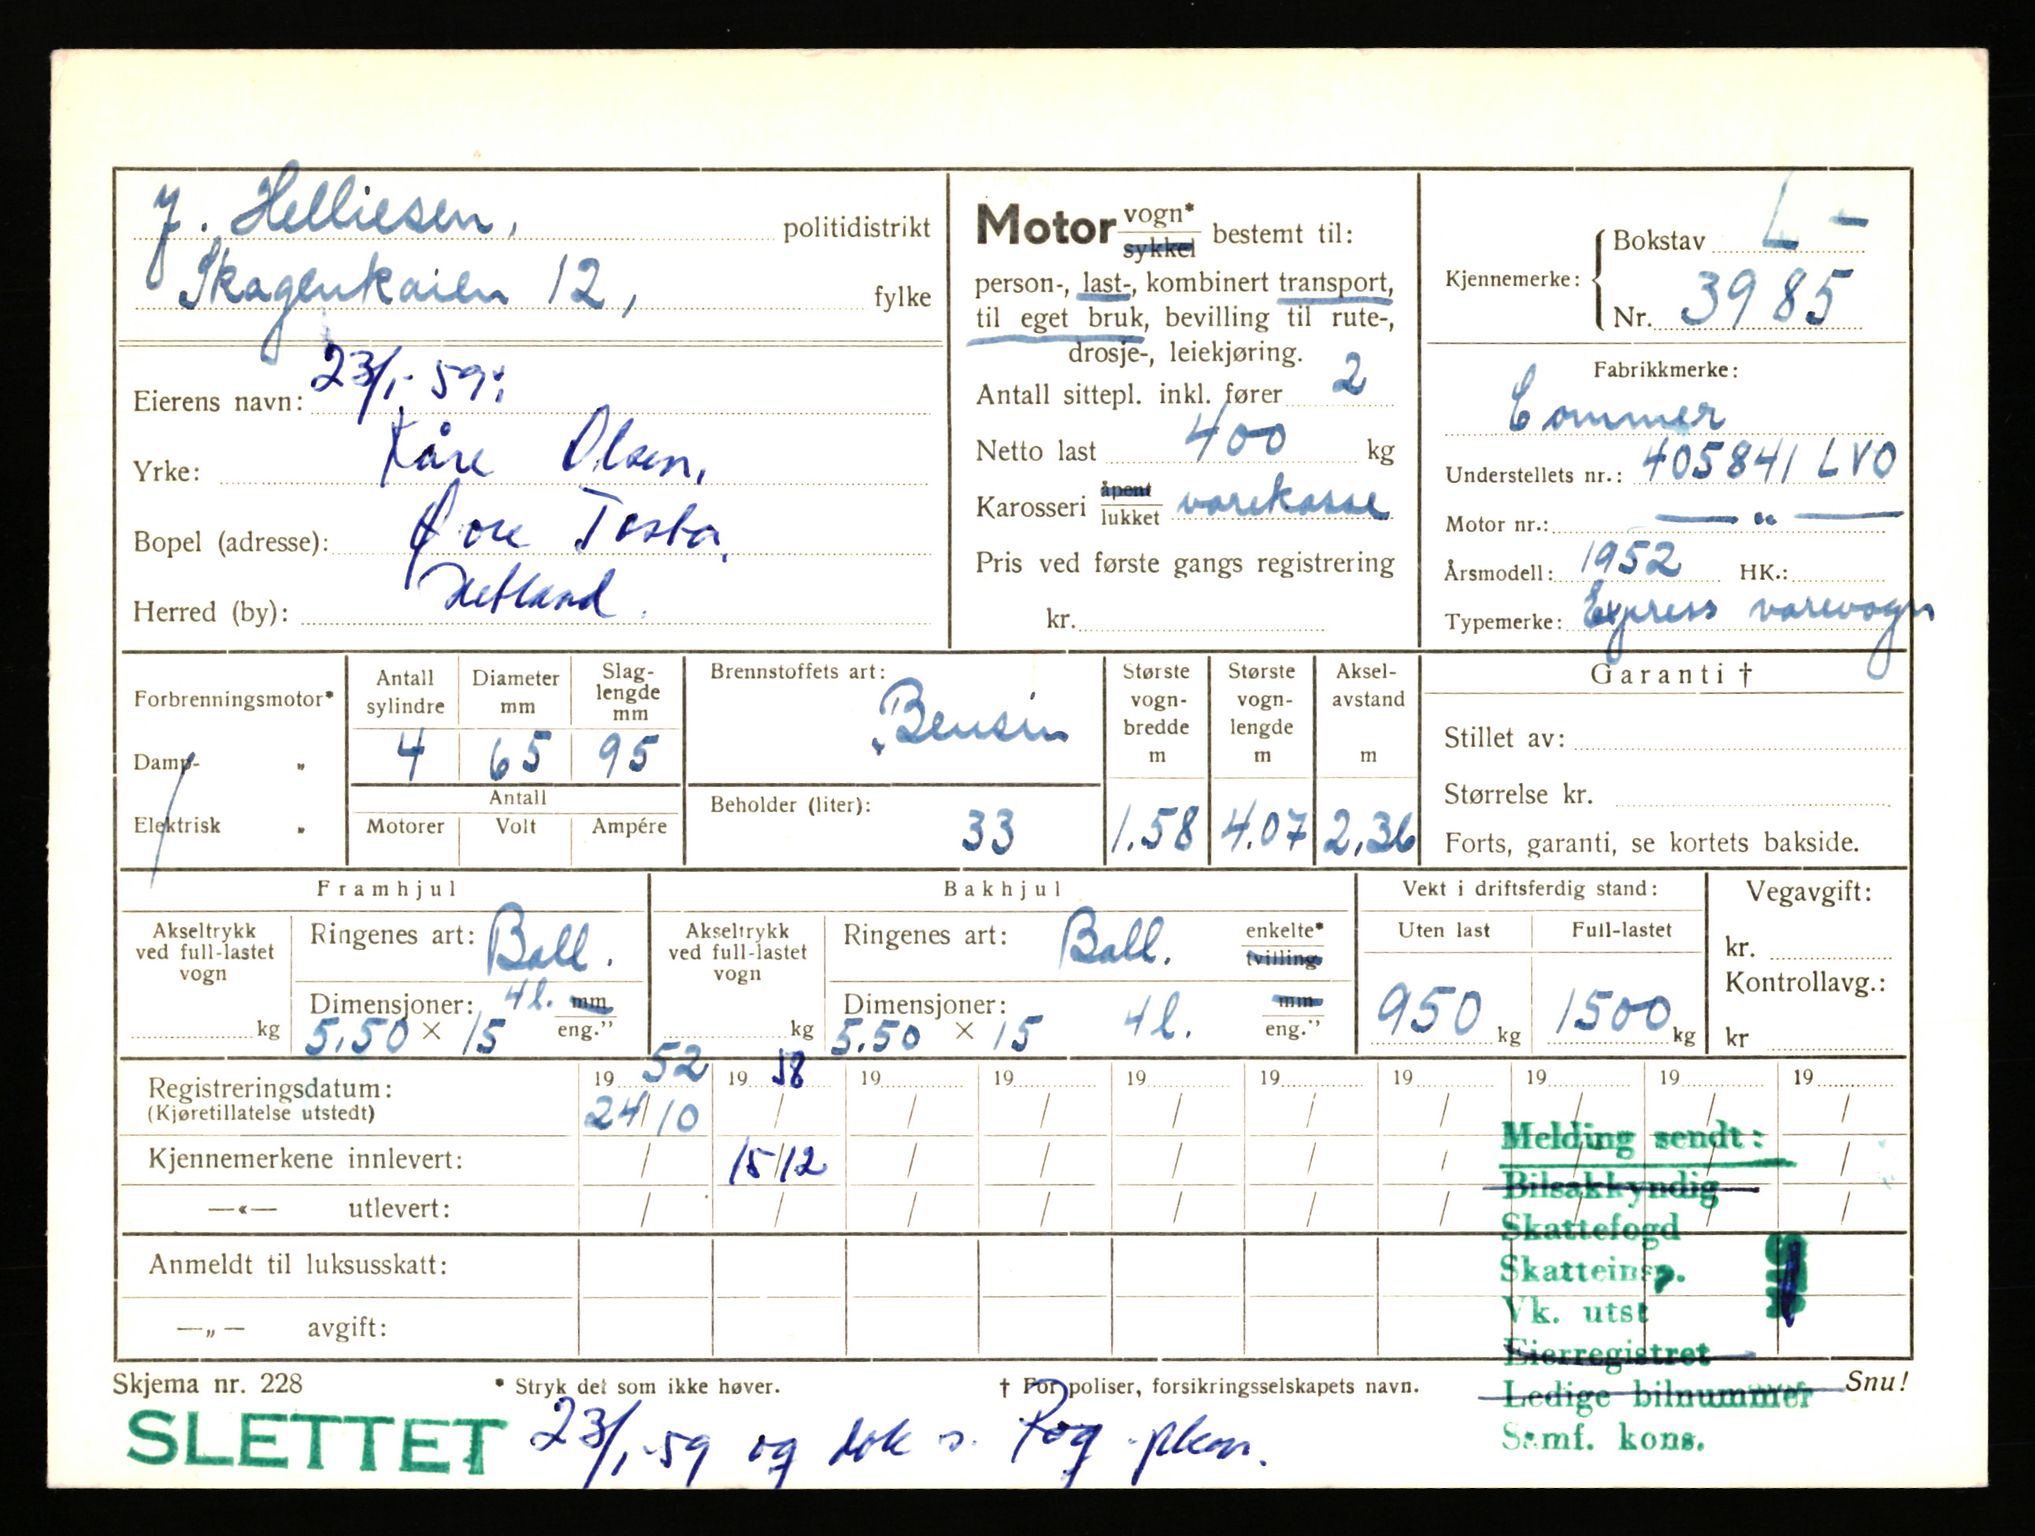 J. Helliesen, politidistrikt
Skagenkaien 12, fylke
Eierens navn: 23/1-59:
Yrke: Kåre Olsen,
Bopel (adresse): Øvre Tasta,
Herred (by): Hetland.
Motor vogn* sykkel bestemt til:
person-, last-, kombinert transport,
til eget bruk, bevilling til rute-,
drosje-, leiekjøring.
Antall sittepl. inkl. fører 2
Netto last 400 kg
Karosseri åpent lukket varekasse
Pris ved første gangs registrering
kr.
Kjennemerke: Bokstav L -
Nr. 3985
Fabrikkmerke:
Commer
Understellets nr.: 405841 LVO
Motor nr.: — " —
Årsmodell: 1952 HK.:
Typemerke: Express varevogn
Forbrenningsmotor*
Damp- „
Elektrisk „
Antall sylindre
Diameter mm
Slag-lengde mm
4 65 95
Antall
Motorer Volt Ampére
Brennstoffets art:
Bensin
Beholder (liter):
33
Største vogn-bredde m
1.58
Største vogn-lengde m
4.07
Aksel-avstand m
2,36
Garanti †
Stillet av:
Størrelse kr.
Forts, garanti, se kortets bakside.
Framhjul
Akseltrykk ved full-lastet vogn
kg
Ringenes art: Ball.
Dimensjoner: 4 l. mm
5.50 × 15 eng."
Bakhjul
Akseltrykk ved full-lastet vogn
kg
Ringenes art: Ball. enkelte* tvilling
Dimensjoner: 4 l. mm
5.50 × 15 eng."
Vekt i driftsferdig stand:
Uten last Full-lastet
950 kg 1500 kg
Vegavgift:
kr.
Kontrollavg.:
kr
Registreringsdatum: 19 52 19 58 19 19 19 19 19 19 19 19
(Kjøretillatelse utstedt) 24/10 / / / / / / / / /
Kjennemerkene innlevert: / 15/12 / / / / / / / /
—«— utlevert: / / / / / / / / /
Anmeldt til luksusskatt:
—„— avgift:
Melding sendt:
Bilsakkyndig
Skattefogd
Skatteinsp.
Vk. utst
Eierregistret
Ledige bilnummer
Samf. kons.
Skjema nr. 228 * Stryk det som ikke høver. † For poliser, forsikringsselskapets navn. Snu!
SLETTET 23/1-59 og dok s. Rog.pkm.